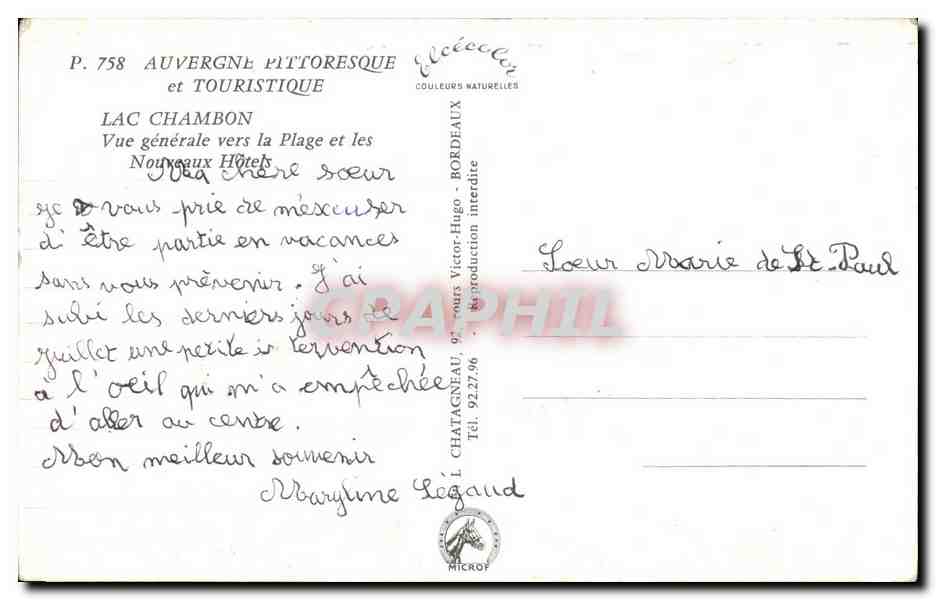 P. 758 AUVERGNE PITTORESQUE
et TOURISTIQUE
LAC CHAMBON
Vue générale vers la Plage et les
Nouveaux Hôtels
Ma chère sœur
je vous prie de m'éxcuser
d'être partie en vacances
sans vous prévenir. J'ai
subi les derniers jours de
juillet une petite intervention
à l'oeil qui m'a empêchée
d'aller au centre.
Mon meilleur souvenir
Maryline Légaud
Elcécolor
COULEURS NATURELLES
CHATAGNEAU, 92, cours Victor-Hugo - BORDEAUX
Tél. 92.27.96 - Reproduction interdite
MICROF
Soeur Marie de St. Paul
CPARHIL